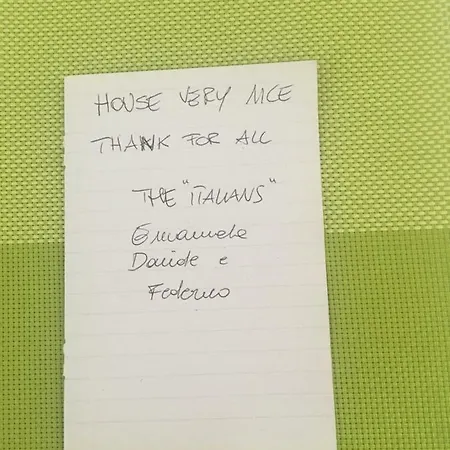 HOUSE VERY NICE
THANK FOR ALL
THE "ITALIANS"
Emanuele
Davide e
Federico